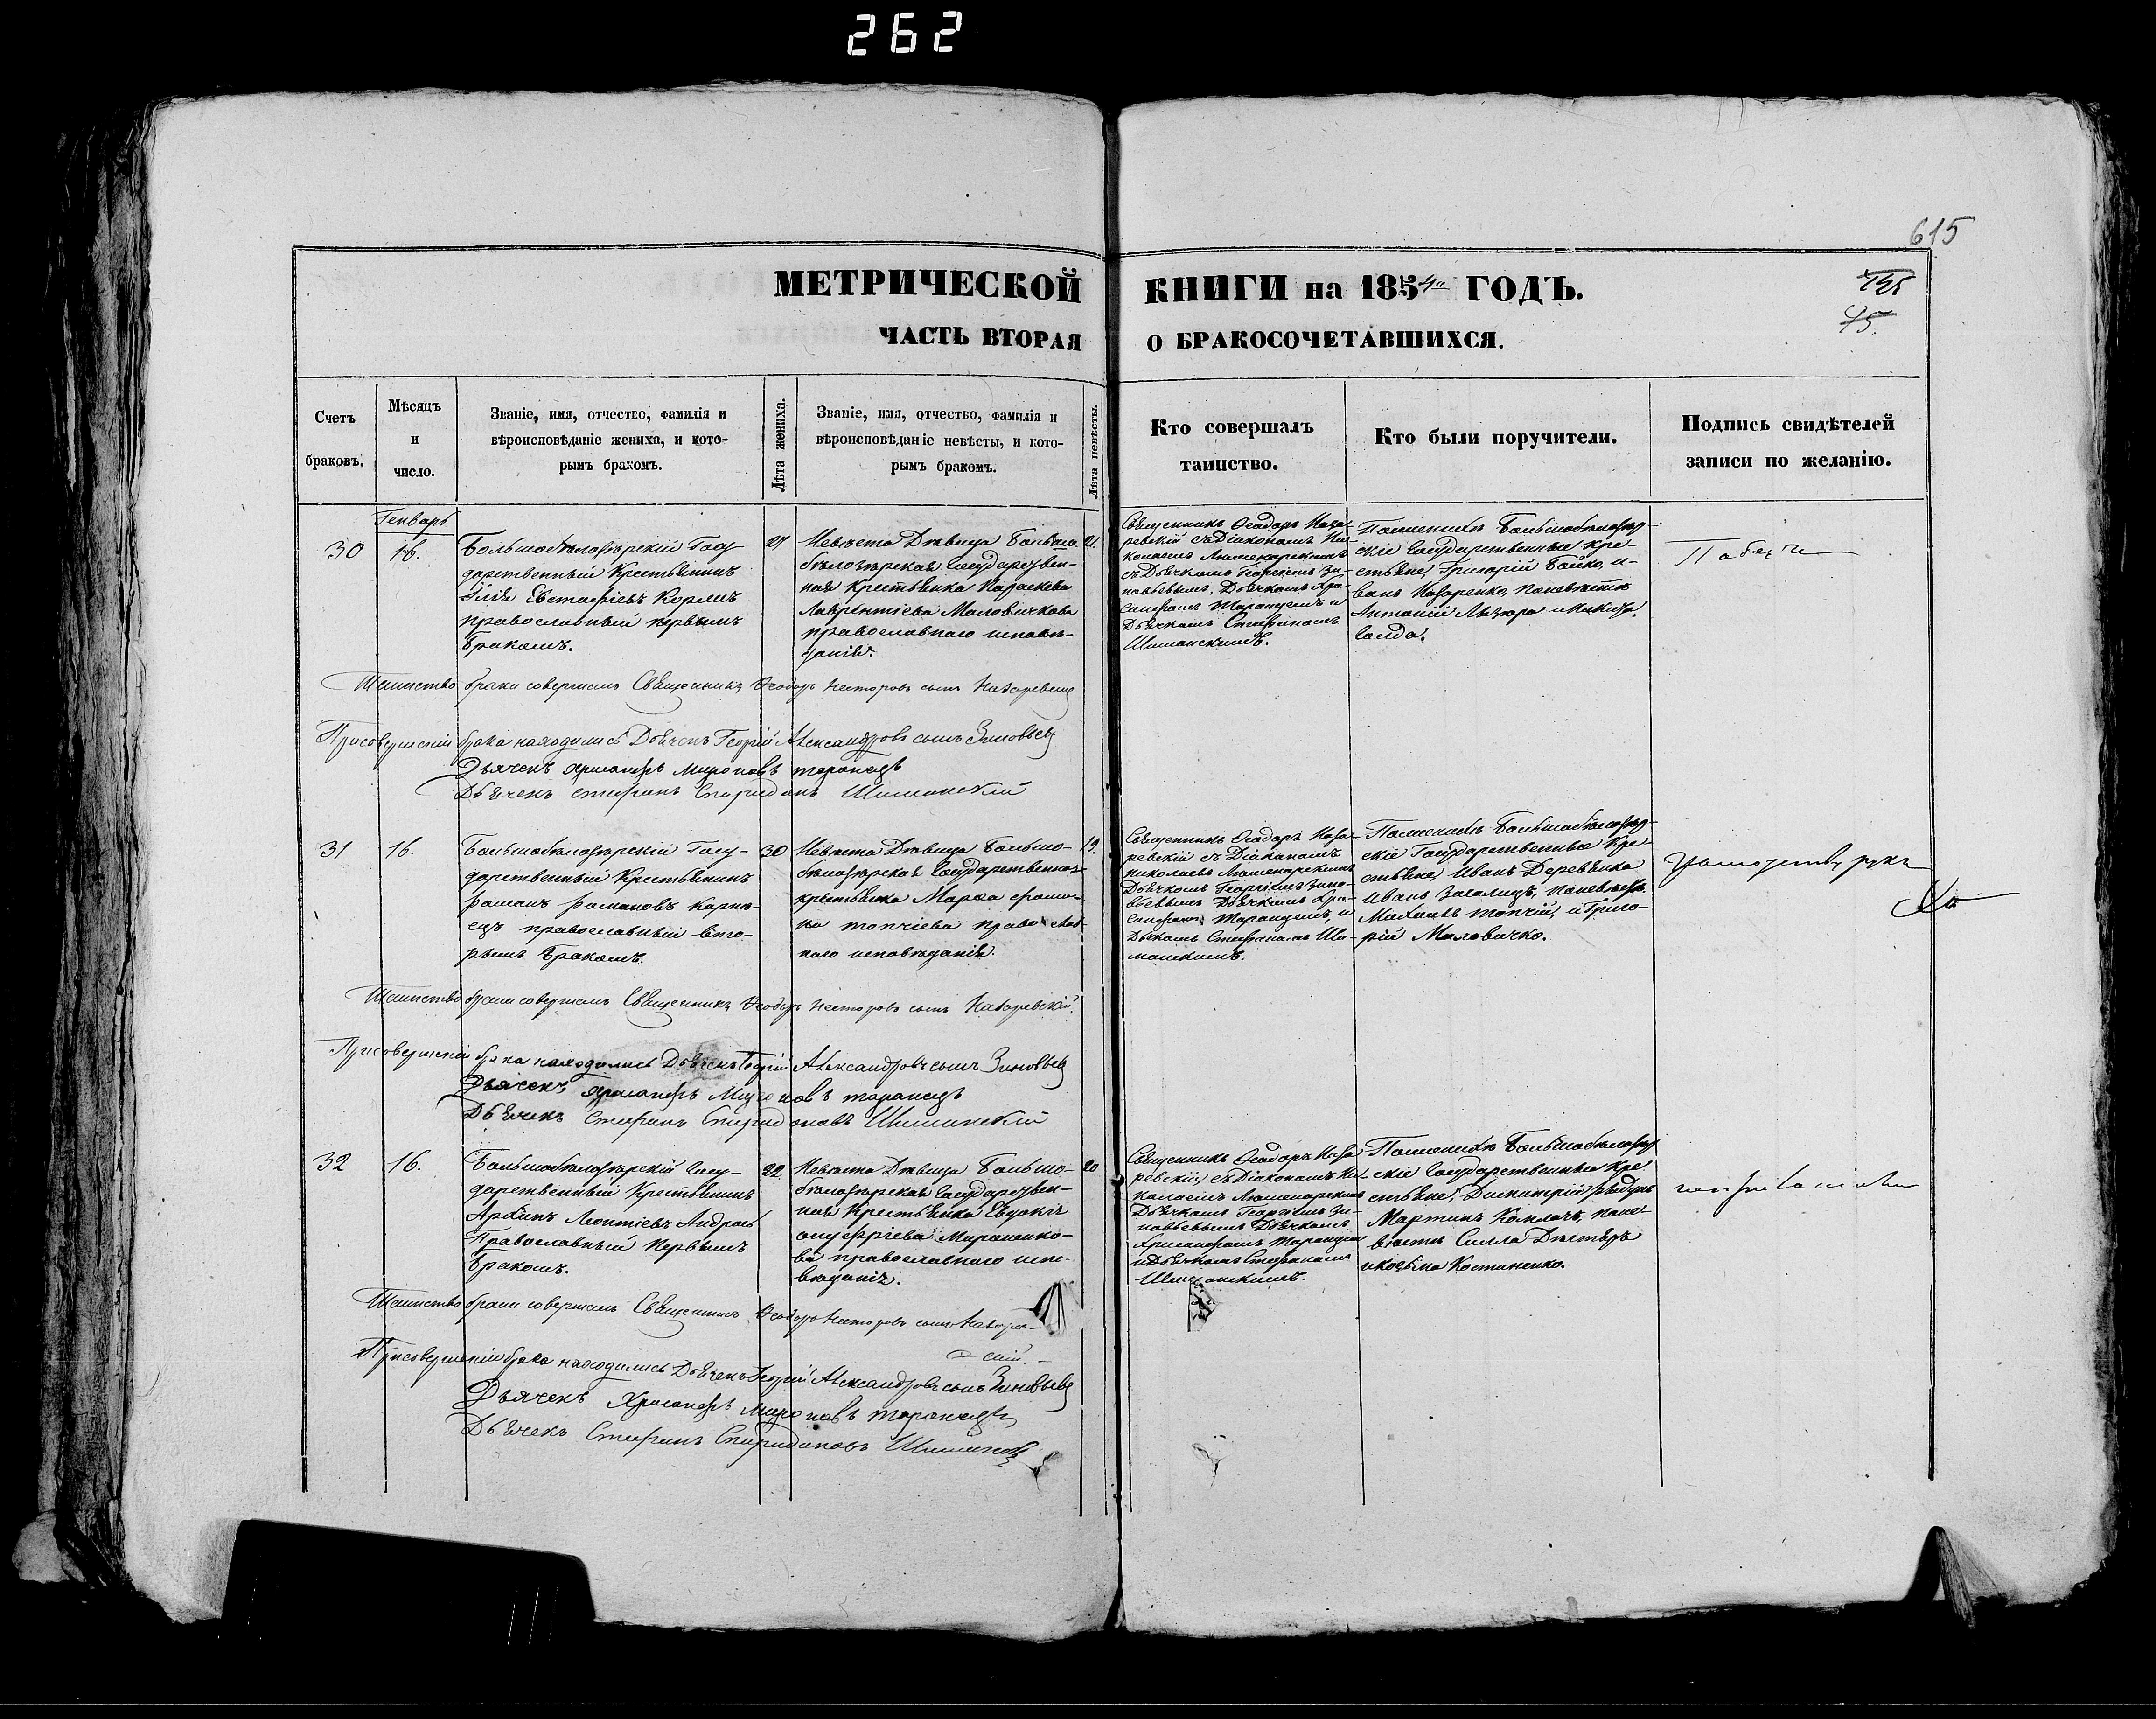 262
615
МЕТРИЧЕСКОЙ КНИГИ на 1854 ГОДЪ.
45.
ЧАСТЬ ВТОРАЯ О БРАКОСОЧЕТАВШИХСЯ.
Счетъ
браковъ.
Мѣсяцъ
и
число.
Званіе, имя, отчество, фамилія и
вѣроисповѣданіе жениха, и кото-
рымъ бракомъ.
Лѣта жениха.
Званіе, имя, отчество, фамилія и
вѣроисповѣданіе невѣсты, и кото-
рымъ бракомъ.
Лѣта невѣсты.
Кто совершалъ
таинство.
Кто были поручители.
Подпись свидѣтелей
записи по желанію.
Генварь
30
16.
Большобѣлозѣрскій Госу
дарственный Крестьянинъ
Илія Евстафіевъ
православный первымъ
бракомъ.
Невѣста Дѣвица Большо-
бѣлозѣрская Государствен-
ная Крестьянка Параскева
Лаврентіева Маловичкова
православнаго исповѣ-
данія.
21.
Священникъ Ѳеодоръ Наза-
ревскій съ Діакономъ Ни-
колаемъ
съ Дьячкомъ Георгіемъ Зи-
новьевымъ, Дьячкомъ Хри-
санфомъ Таранцемъ и
Дьячкомъ Стефаномъ
Шиманскимъ.
По женихѣ Большобѣлозѣр-
скіе Государственные Кре-
стьяне, Григорій Бойко, и-
ванъ Назаренко, по невѣстѣ
Антоній
Таинство брака совершалъ Священникъ Ѳеодоръ Несторовъ сынъ Назаревскій
При совершеніи брака находились Дьячекъ Георгій Александровъ сынъ Зиновьевъ
Дьячекъ Хрисанфъ Мироновъ таранецъ
Дьячекъ Стефанъ Спиридоновъ Шиманскій
31
16.
Большобѣлозѣрскій Госу-
дарственный Крестьянинъ
романъ романовъ Карно-
ецъ православный вто-
рымъ бракомъ.
30
Невѣста Дѣвица Большо-
бѣлозѣрская Государственная
крестьянка Марѳа
на топчіева православ-
наго исповѣданія.
19.
Священникъ Ѳеодоръ Наза-
ревскій съ Діакономъ
Николаемъ
Дьячкомъ Георгіемъ Зино-
вьевымъ Дьячкомъ Хри-
санфомъ Таранцемъ, и
Дьячкомъ Стефаномъ Ши-
манскимъ.
По женихѣ Большобѣлозѣр-
скіе Государственные Кре
стьяне, Иванъ Деревянка
Иванъ по невѣстѣ
Михаилъ топчій, и Григо-
рій Маловичко.
Таинство брака совершалъ Священникъ Ѳеодоръ Несторовъ сынъ Назаревскій.
При совершеніи брака находились Дьячекъ Георгій Александровъ сынъ Зиновьевъ
Дьячекъ Хрисанфъ Мироновъ таранецъ
Дьячекъ Стефанъ Спиридоновъ Шиманскій
32
16.
Большобѣлозѣрскій Госу-
дарственный Крестьянинъ
Архипъ Леонтіевъ
Православный Первымъ
бракомъ.
22.
Невѣста Дѣвица Большо-
бѣлозѣрская Государствен-
ная Крестьянка Евдокія
онуфріева Мироненко-
ва православнаго испо-
вѣданія.
20
Священникъ Ѳеодоръ Наза
ревскій, съ Діакономъ Ни-
колаемъ
Дьячкомъ Георгіемъ Зи-
новьевымъ Дьячкомъ
Хрисанфомъ Таранцемъ
и Дьячкомъ Стефаномъ
Шиманскимъ.
По женихѣ Большобѣлозѣр
скіе Государственные Кре
стьяне, Димитрій
Мартинъ по не-
вѣстѣ Силла
и козьма Костиненко.
Таинство брака совершалъ Священникъ Ѳеодоръ Несторовъ сынъ Назарев-
скій.
При совершеніи брака находились Дьячекъ Георгій Александровъ сынъ Зиновьевъ
Дьячекъ Хрисанфъ Мироновъ таранецъ
Дьячекъ Стефанъ Спиридоновъ Шиманскій